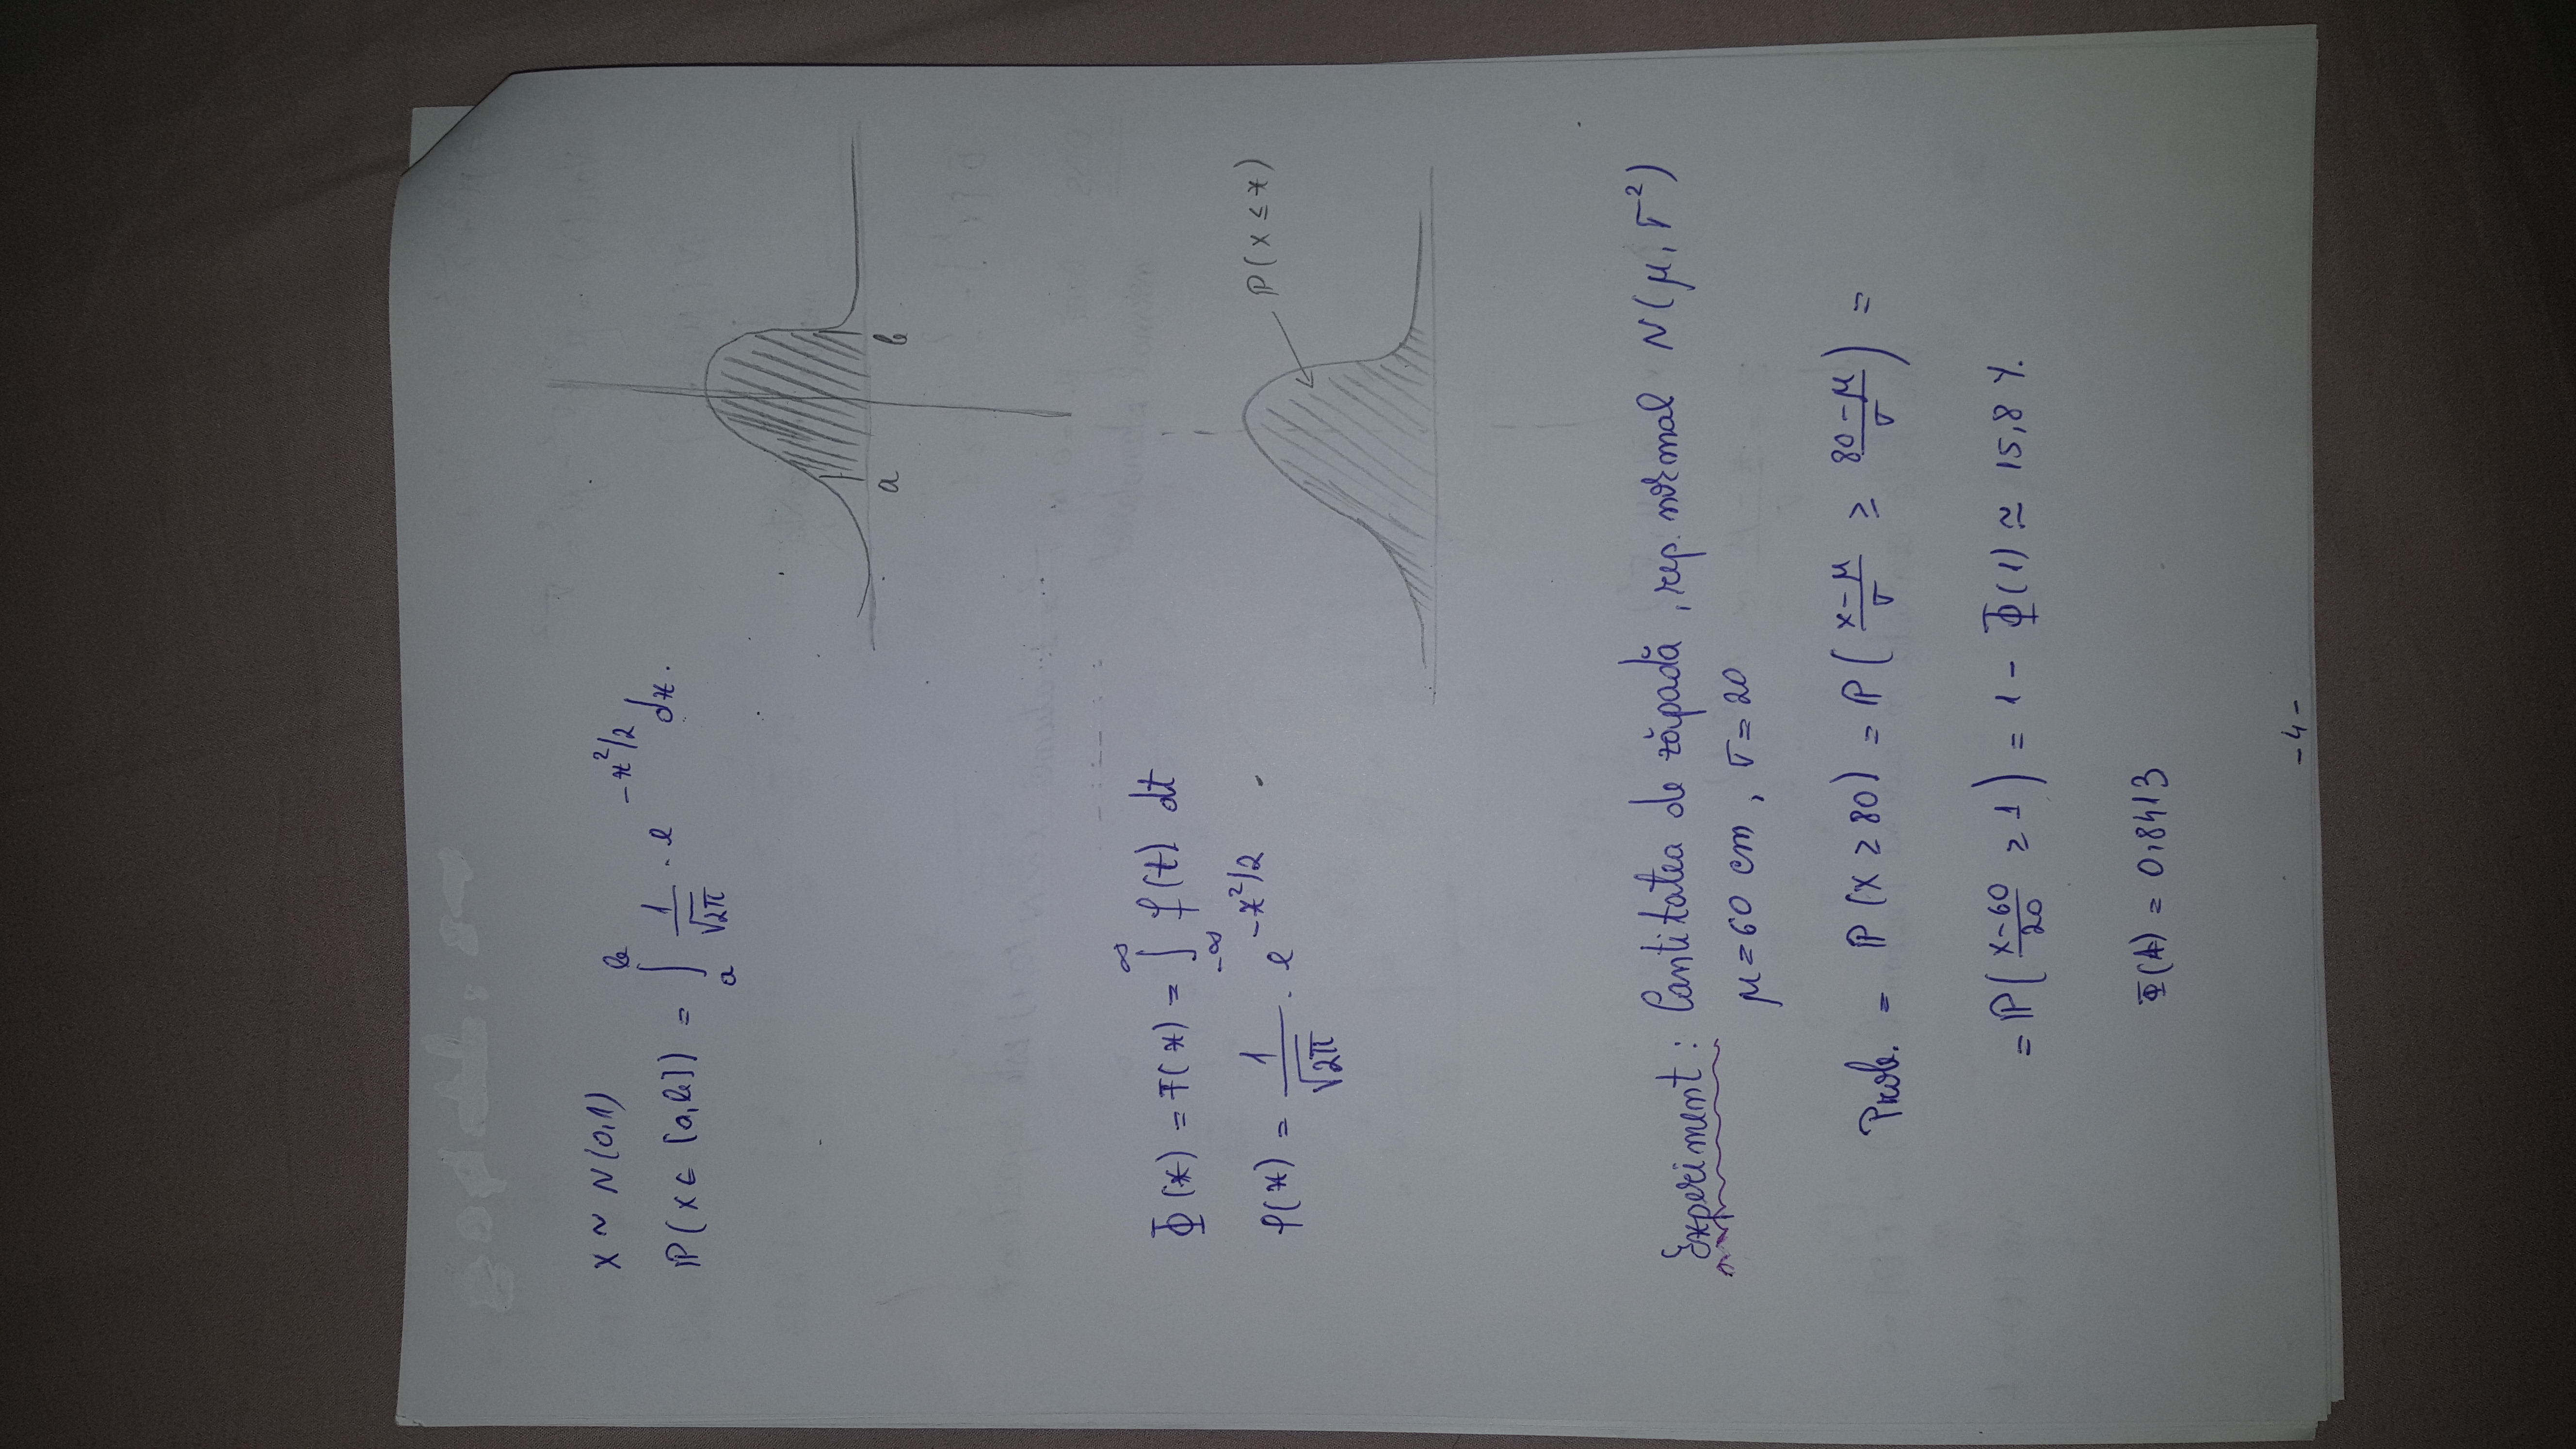 X ~ N(0,1)
P(X ∈ [a,b]) = ∫_a^b 1/√2π · e^{-x²/2} dx.
a b
Φ(x) = F(x) = ∫_{-∞}^{∞} f(t) dt
f(x) = 1/√2π · e^{-x²/2}
P(X ≤ x)
Experiment: Cantitatea de zăpadă, rep. normal N(μ, σ²)
μ = 60 cm, σ = 20
Prob. = P(X ≥ 80) = P((X-μ)/σ ≥ (80-μ)/σ) =
= P((X-60)/20 ≥ 1) = 1 - Φ(1) ≈ 15,8 %.
Φ(1) = 0,8413
- 4 -